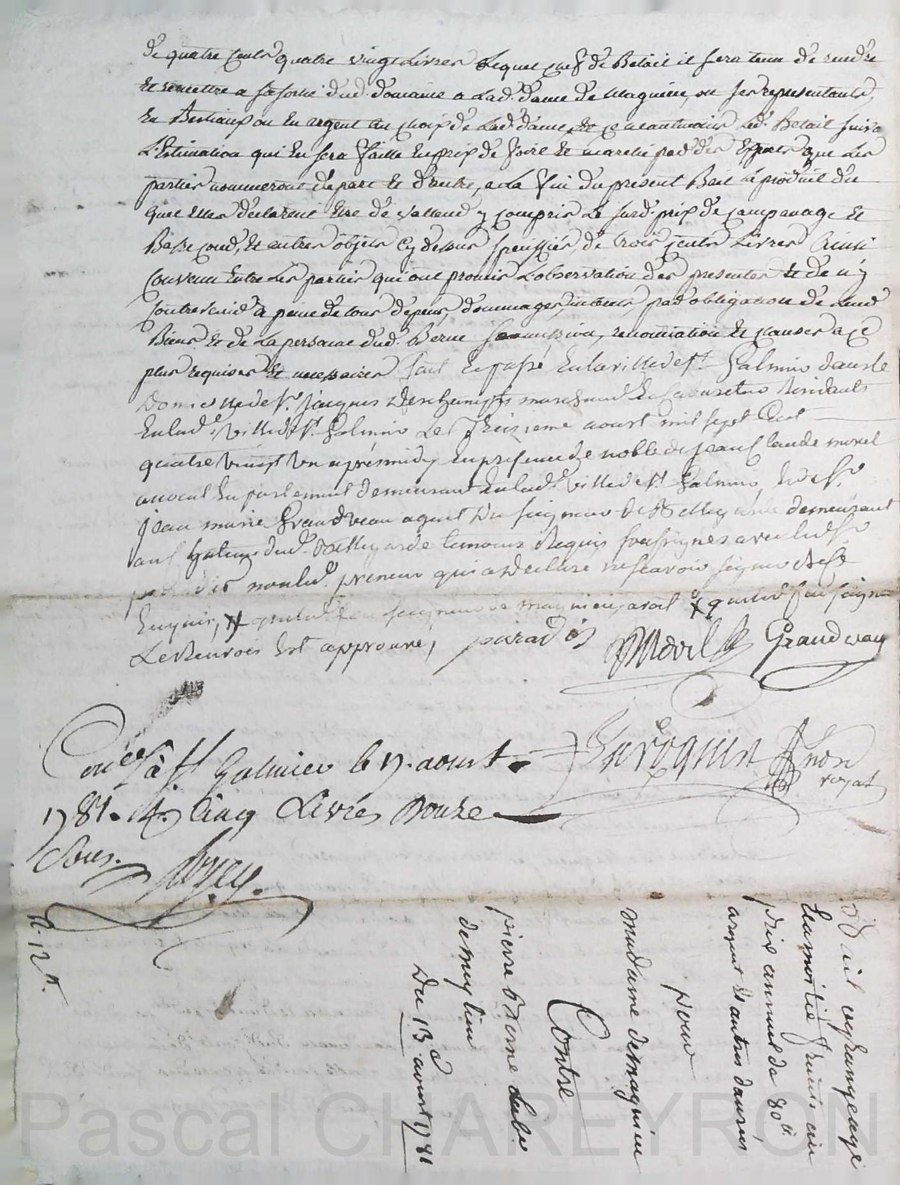 de quatre cents quatre vingt Livres Lequel chef de Betail il sera tenu de rendre
et remettre a sa sortie dud. domaine a Lad. dame de Magnieu, ou ses representants,
en Bestiaux ou en argent au choix de Lad. dame, et ce neantmoins Led. Betail suiv.
L'Estimation qui en sera faitte en prix de foire et marché par des Experts que Les
parties nommeront de part et d'autre, a La fin du present Bail Le produit du
quel Elles declarent Etre de valleur y compris Le susd. prix de
et autres objets cy dessus de trois cents Livres Ainsi
Convenu Entre Les parties qui ont promis L'observation des presentes et de n'y
contrevenir a peine de tous depens, dommages, interets, par obligation de Leurs
Biens et de La personne dud. Berne soumission, renonciation et clauses a ce
plus requises et necessaires fait et passé En la ville de St. Galmier dans le
Domicille de Sr. Jacques Deschamps marchand Residant
En lad. ville de St. Galmier Le treizieme aoust mil sept Cent
quatre vingt un apres midy En presence de noble Jean Claude morel
avocat En parlement demeurant En lad. ville de St. Galmier Et de Sr.
Jean marie Grandveau agent du seigneur de Bellegarde demeurant
au dud. Bellegarde temoins Requis soussignés avec led. Sr
paradis non led. preneur qui a declaré ne scavoir signer de ce
Enquis, seigneur de magnieu
Le Renvois Est approuvé, paradis Morel Grandveau
Con.lé à St Galmier le 17. aoust Enroquin Not.
1781. R. Cinq Livres Douze royal
Sous.
R. 12 s.
Bail a grangeage
La moitié fruits au
prix annuel de 80 lt
argent et autres danrées
pour
madame demagnieu
Contre
pierre Berne Labr.
demeylieu
Du 13 e aoust 1781
Pascal CHAREYRON